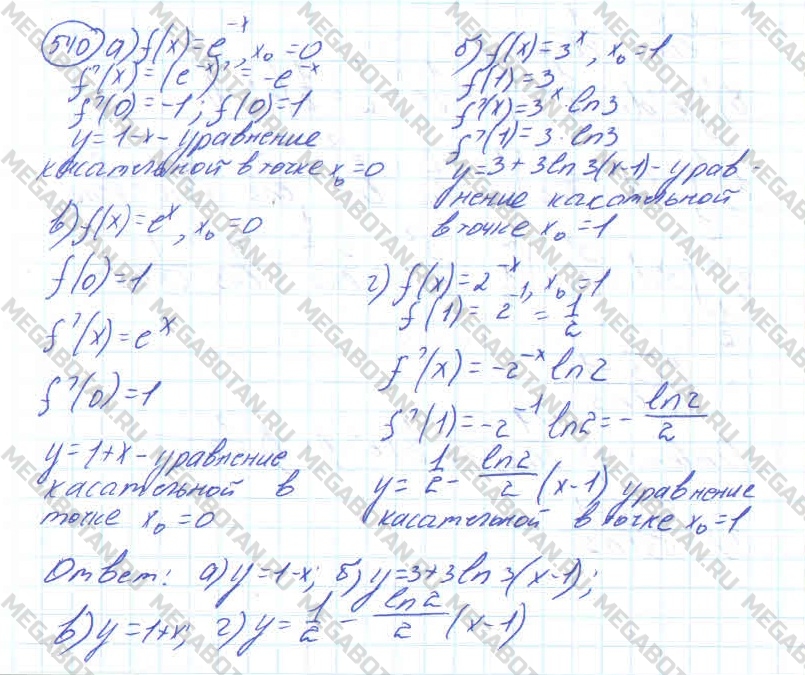 540 а) f(x)=e^{-x}, x₀=0
f'(x)=(e^{-x})'=-e^{-x}
f'(0)=-1; f(0)=1
y=1-x- уравнение
касательной в точке x₀=0
б) f(x)=3^x, x₀=1
f(1)=3
f'(x)=3^x·ln3
f'(1)=3·ln3
y=3+3ln3(x-1)- урав-
нение касательной
в точке x₀=1
в) f(x)=e^x, x₀=0
f(0)=1
f'(x)=e^x
f'(0)=1
y=1+x- уравнение
касательной в
точке x₀=0
г) f(x)=2^{-x}, x₀=1
f(1)=2^{-1}=1/2
f'(x)=-2^{-x}ln2
f'(1)=-2^{-1}ln2=-ln2/2
y=1/2-ln2/2(x-1) уравнение
касательной в точке x₀=1
Ответ: а) y=1-x; б) y=3+3ln3(x-1);
в) y=1+x; г) y=1/2-ln2/2(x-1)
MEGABOTAN.RU